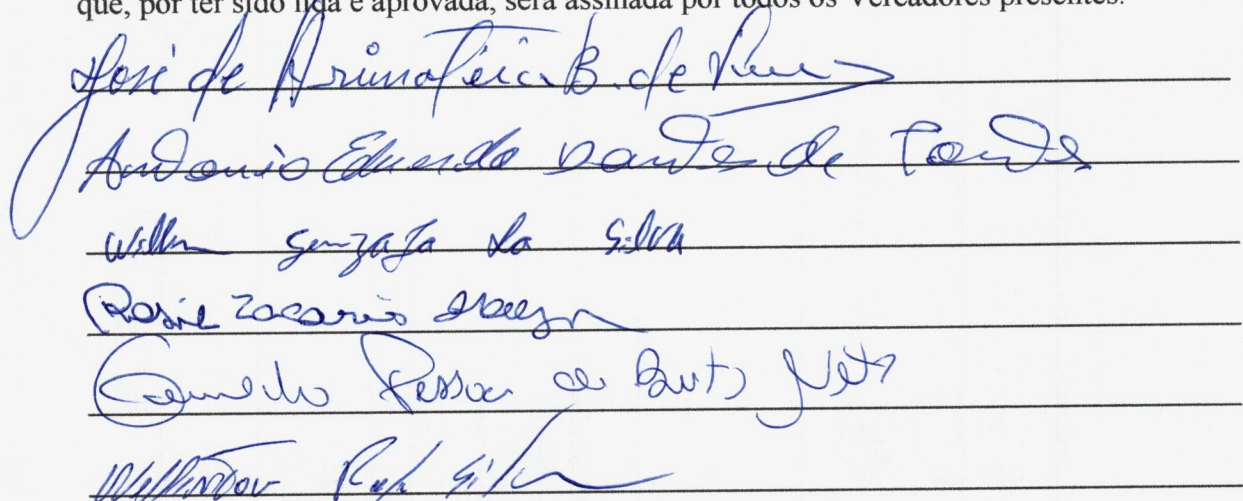 que, por ter sido lida e aprovada, será assinada por todos os Vereadores presentes.
José de Arimateia B. de
Antonio Eduardo Dantas de
Gonzaga da Silva
Zacarias
Pessoa de Brito Neto
Silva